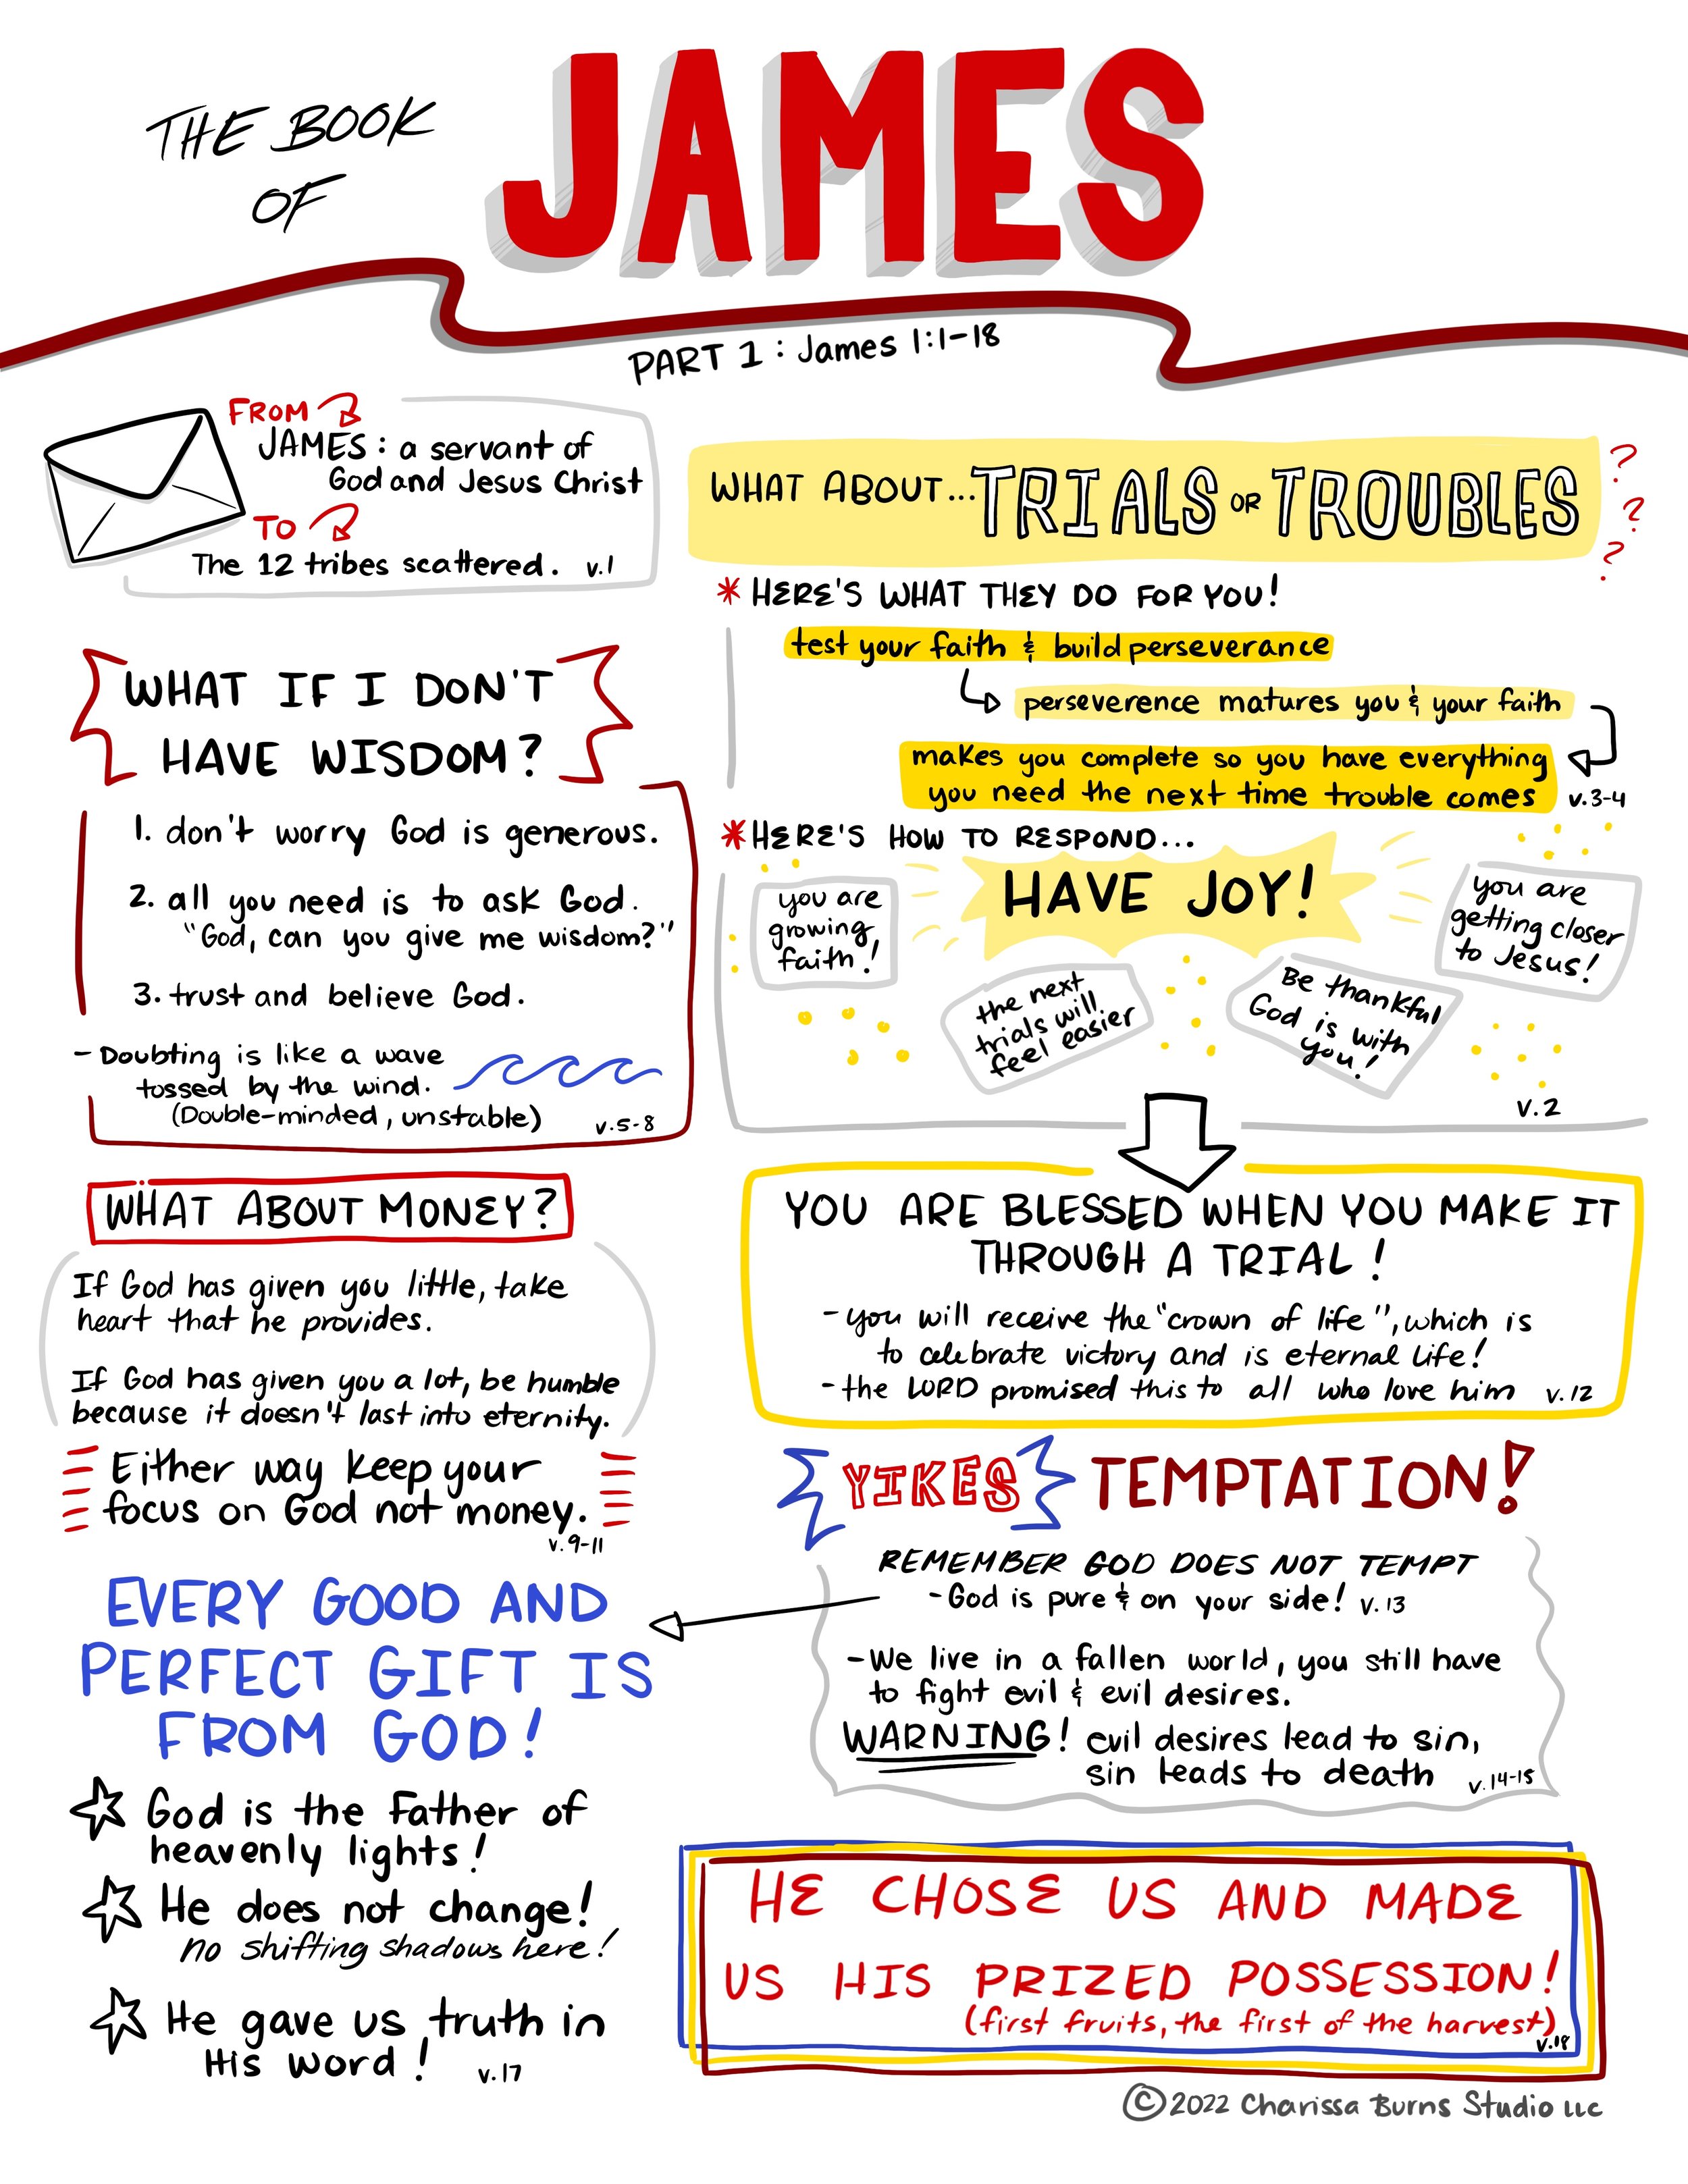 THE BOOK
OF
JAMES
PART 1: James 1:1-18
FROM
JAMES: a servant of
God and Jesus Christ
TO
The 12 tribes scattered. v.1
WHAT IF I DON'T
HAVE WISDOM?
1. don't worry God is generous.
2. all you need is to ask God.
"God, can you give me wisdom?"
3. trust and believe God.
- Doubting is like a wave
tossed by the wind.
(Double-minded, unstable)
v.5-8
WHAT ABOUT MONEY?
If God has given you little, take
heart that he provides.
If God has given you a lot, be humble
because it doesn't last into eternity.
Either way keep your
focus on God not money.
v.9-11
EVERY GOOD AND
PERFECT GIFT IS
FROM GOD!
God is the Father of
heavenly lights!
He does not change!
no shifting shadows here!
He gave us truth in
His word! v.17
WHAT ABOUT... TRIALS OR TROUBLES
???
* HERE'S WHAT THEY DO FOR YOU!
test your faith & build perseverance
perseverence matures you & your faith
makes you complete so you have everything
you need the next time trouble comes v.3-4
* HERE'S HOW TO RESPOND...
HAVE JOY!
you are
growing
faith!
the next
trials will
feel easier
Be thankful
God is with
you!
you are
getting closer
to Jesus!
v.2
YOU ARE BLESSED WHEN YOU MAKE IT
THROUGH A TRIAL!
- you will receive the "crown of life", which is
to celebrate victory and is eternal life!
- the LORD promised this to all who love him v.12
YIKES TEMPTATION!
REMEMBER GOD DOES NOT TEMPT
- God is pure & on your side! v.13
- We live in a fallen world, you still have
to fight evil & evil desires.
WARNING! evil desires lead to sin,
sin leads to death v.14-15
HE CHOSE US AND MADE
US HIS PRIZED POSSESSION!
(first fruits, the first of the harvest)
v.18
© 2022 Charissa Burns Studio LLC